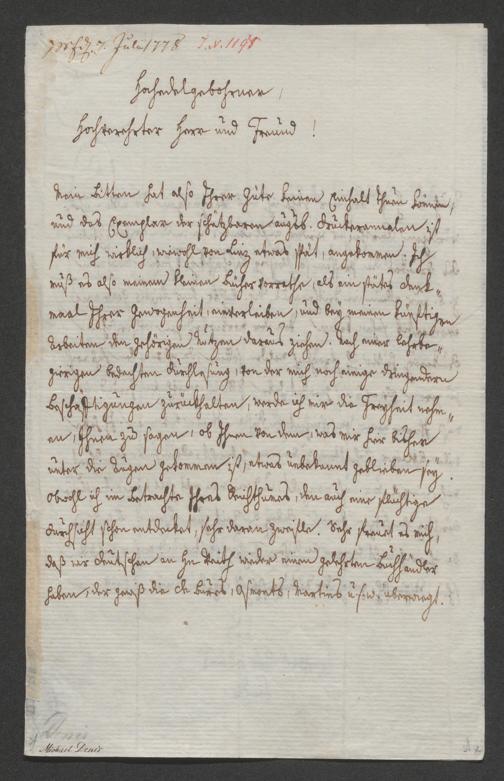 7. Juli 1778 
Hochedelgebohrner,
Hochverehrter Herr und Freund!
Mein Bitten hat also Ihrer Güte keinen Einhalt thun können,
und das Exemplar der schätzbaren augsb. Druckerannalen ist
für mich wirklich, wiewohl von Linz etwas spät, angekommen. Ich
muß es also meinem kleinen Büchervorrathe, als ein stätes Denk-
maal Ihrer Gewogenheit, einverleiben, und bey meinen künftigen
Arbeiten den gehörigen Nutzen daraus ziehen. Nach einer lehrbe-
gierigen bedachten Durchlesung, von der mich noch einige dringendern
Beschäfftigungen zurückhalten, werde ich mir die Freyheit nehm-
en, Ihnen zu sagen, ob Ihnen von dem, was mir hier bisher
unter die Augen gekommen ist, etwas unbekannt geblieben sey.
Obwohl ich in Betrachte Ihres Reichthumes, den auch eine flüchtige
Durchsicht schon entdecket, sehr daran zweifle. Sehr freuet es mich,
daß wir Deutschen an Hn Veith wieder einen gelehrten Buchhändler
haben, der gewiß die de Bures, Osmonts, Martins u.s.w. überwiegt.
Denis
Michael Denis